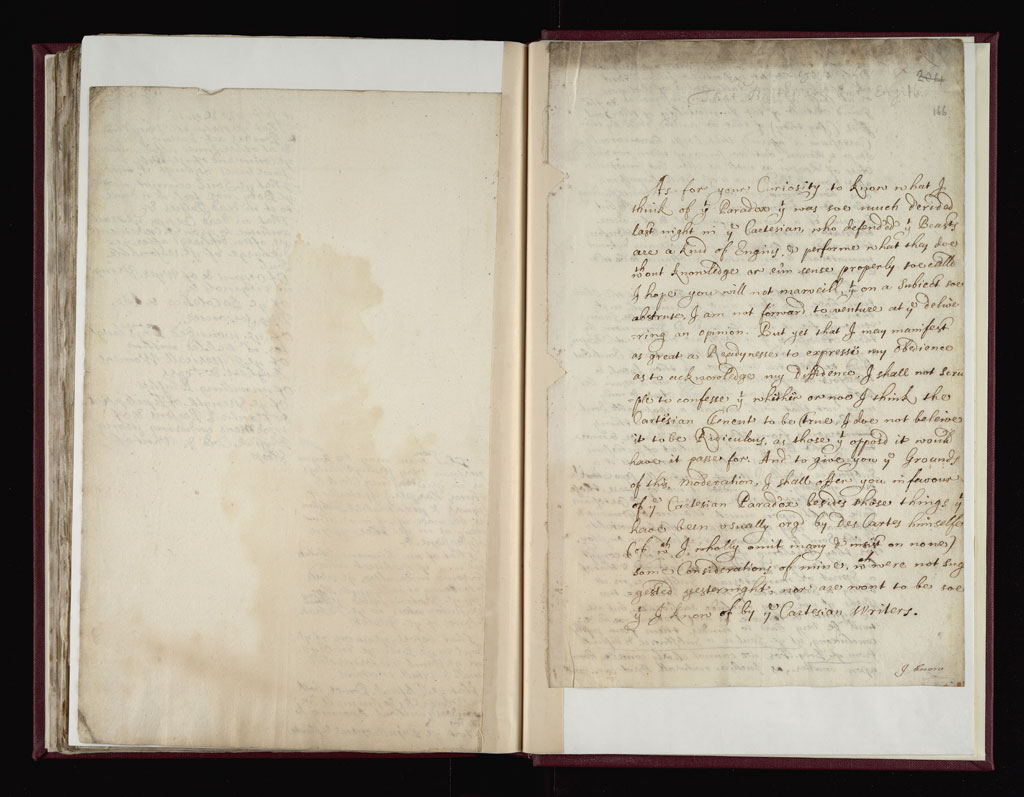 204
166
As for your Curiosity to know what I
think of yͤ Paradox yͭ was soe much derided
last night in yͤ Cartesian, who defended yͭ Beasts
are a kind of Engins, & performe what they doe
wᵗʰout knowledge or eũn sense properly soe calld
I hope you will not marveill, yͭ on a Subiect soe
abstruse, I am not forward to venture at yͤ delive
-ring an opinion. But yet that I may manifest
as great a Readynesse to expresse my Obedience
as to acknowledge my Diffidence, I shall not scru
-ple to confesse yͭ whither or noe I think the
Cartesian Tenent to be True, I doe not beleive
it to be Ridiculous, as those yͭ opposd it would
have it passe for. And to give you yͤ Grounds
of this Moderation, I shall offer you in favour
of yͤ Cartesian Paradox besides those things yͭ
have been usually urg'd by Des Cartes himselfe
(of wᶜʰ I wholly omit many & insist on none)
some Considerations of mine, wᶜʰ were not sug
gested yesternight, nor are wont to be soe
yͭ I know of by yͤ Cartesian Writers.